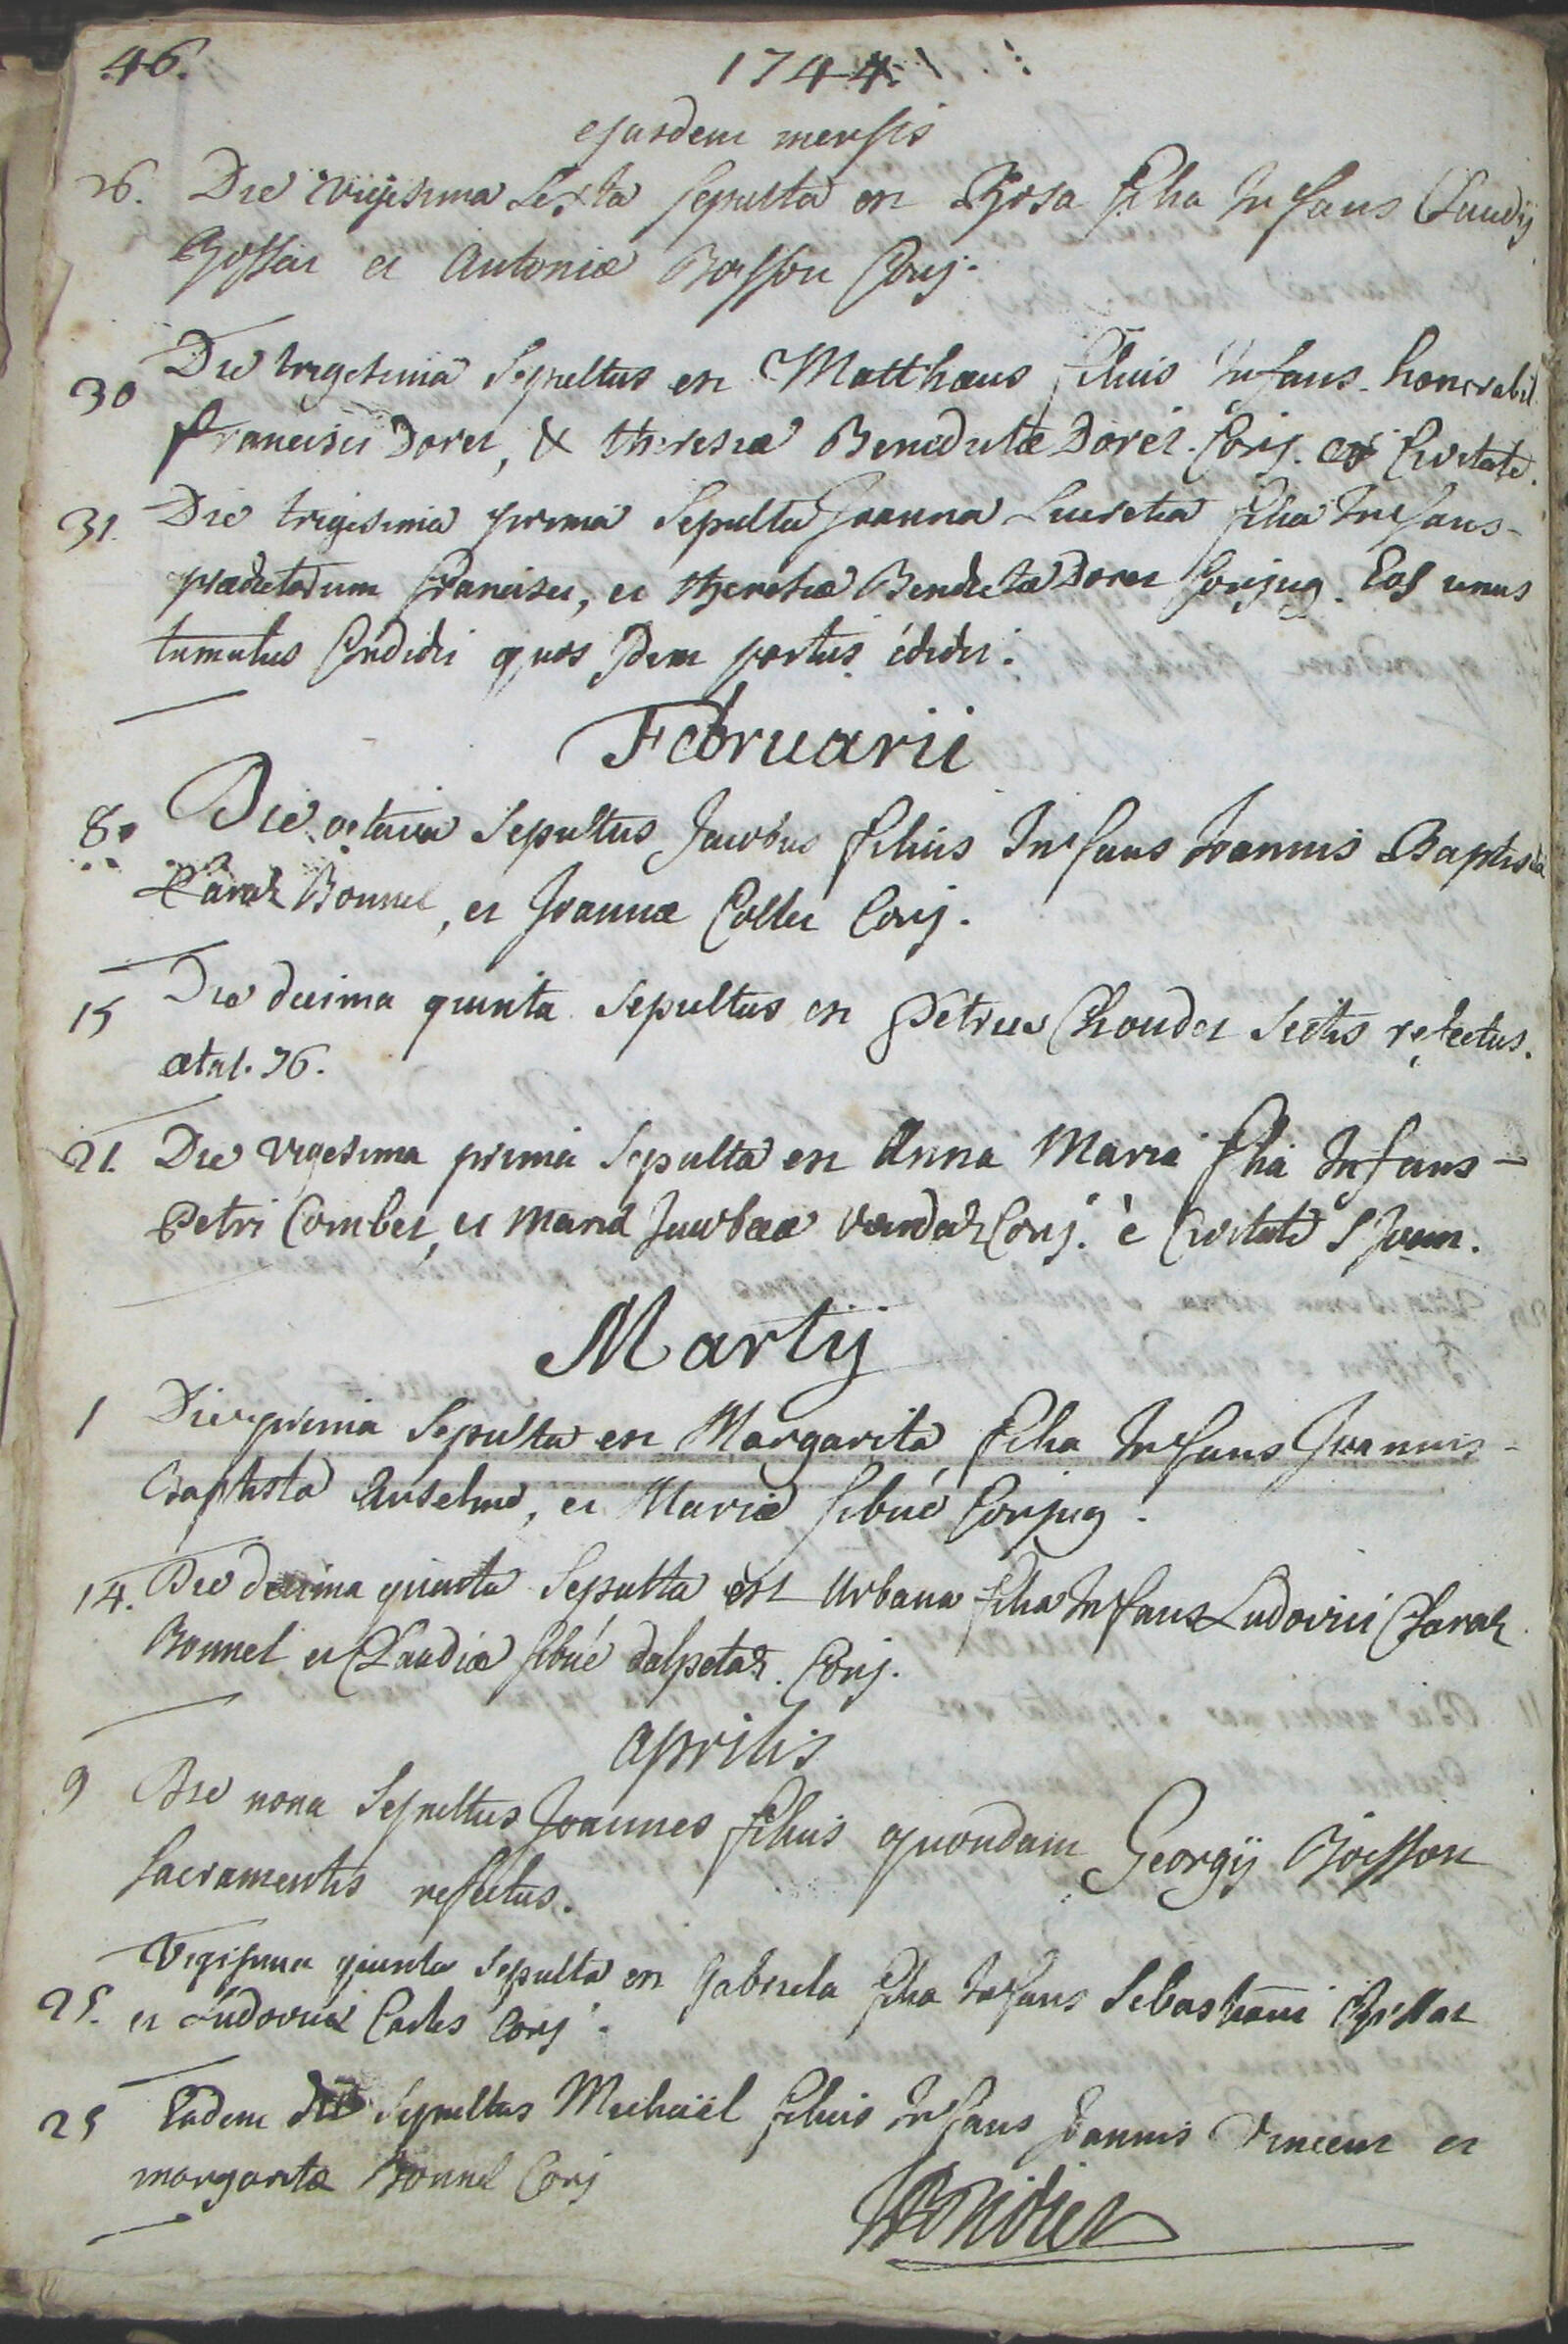 46.
1744.
ejusdem mensis
26. Die vigesima sexta sepulta est Rosa filia Infans Claudij
et Antoniæ Boisson Conj.
30 Die trigesima Sepultus est Matthæus filius Infans honorabil.
Francisci Doret, & theresiæ Benedictæ Doret. Conj. ex Civitate.
31. Die trigesima prima Sepulta Joanna Lucretia filia Infans-
prædictorum Francisci, et theresiæ Benedictæ Doret Conjug. Eos unus
tumulus Condidit quos Idem partus édidit.
Februarii
8. Die octava Sepultus Jacobus filius Infans Joannis Baptistæ
Claraz Bonnel, et Joannæ Collet Conj.
15 Die decima quinta Sepultus est Petrus Choudet Sctis refectus.
ætat. 76.
21. Die vigesima prima Sepulta est Anna Maria filia Infans-
Petri Combet, et Mariæ Jacobeæ Conj. è Civitate S Joan.
Martij
1 Die prima Sepulta est Margarita filia Infans Joannis-
Baptistæ Anselme, et Mariæ Sibué Conjug.
14. Die decima quinta Sepulta est Urbana filia Infans Ludovici Claraz
Bonnel et Claudiæ Sibué dalpetaz. Conj.
aprilis
9 Die nona Sepultus Joannes filius quondam Georgij Boisson
Sacramentis refectus.
Vigesima quinta Sepulta est Gabriela filia Infans Sebastiani
25. et Ludovicæ Conj.
25 Eadem die Sepultus Michaël filius Infans Joannis Vincent et
margaritæ Bonnel Conj